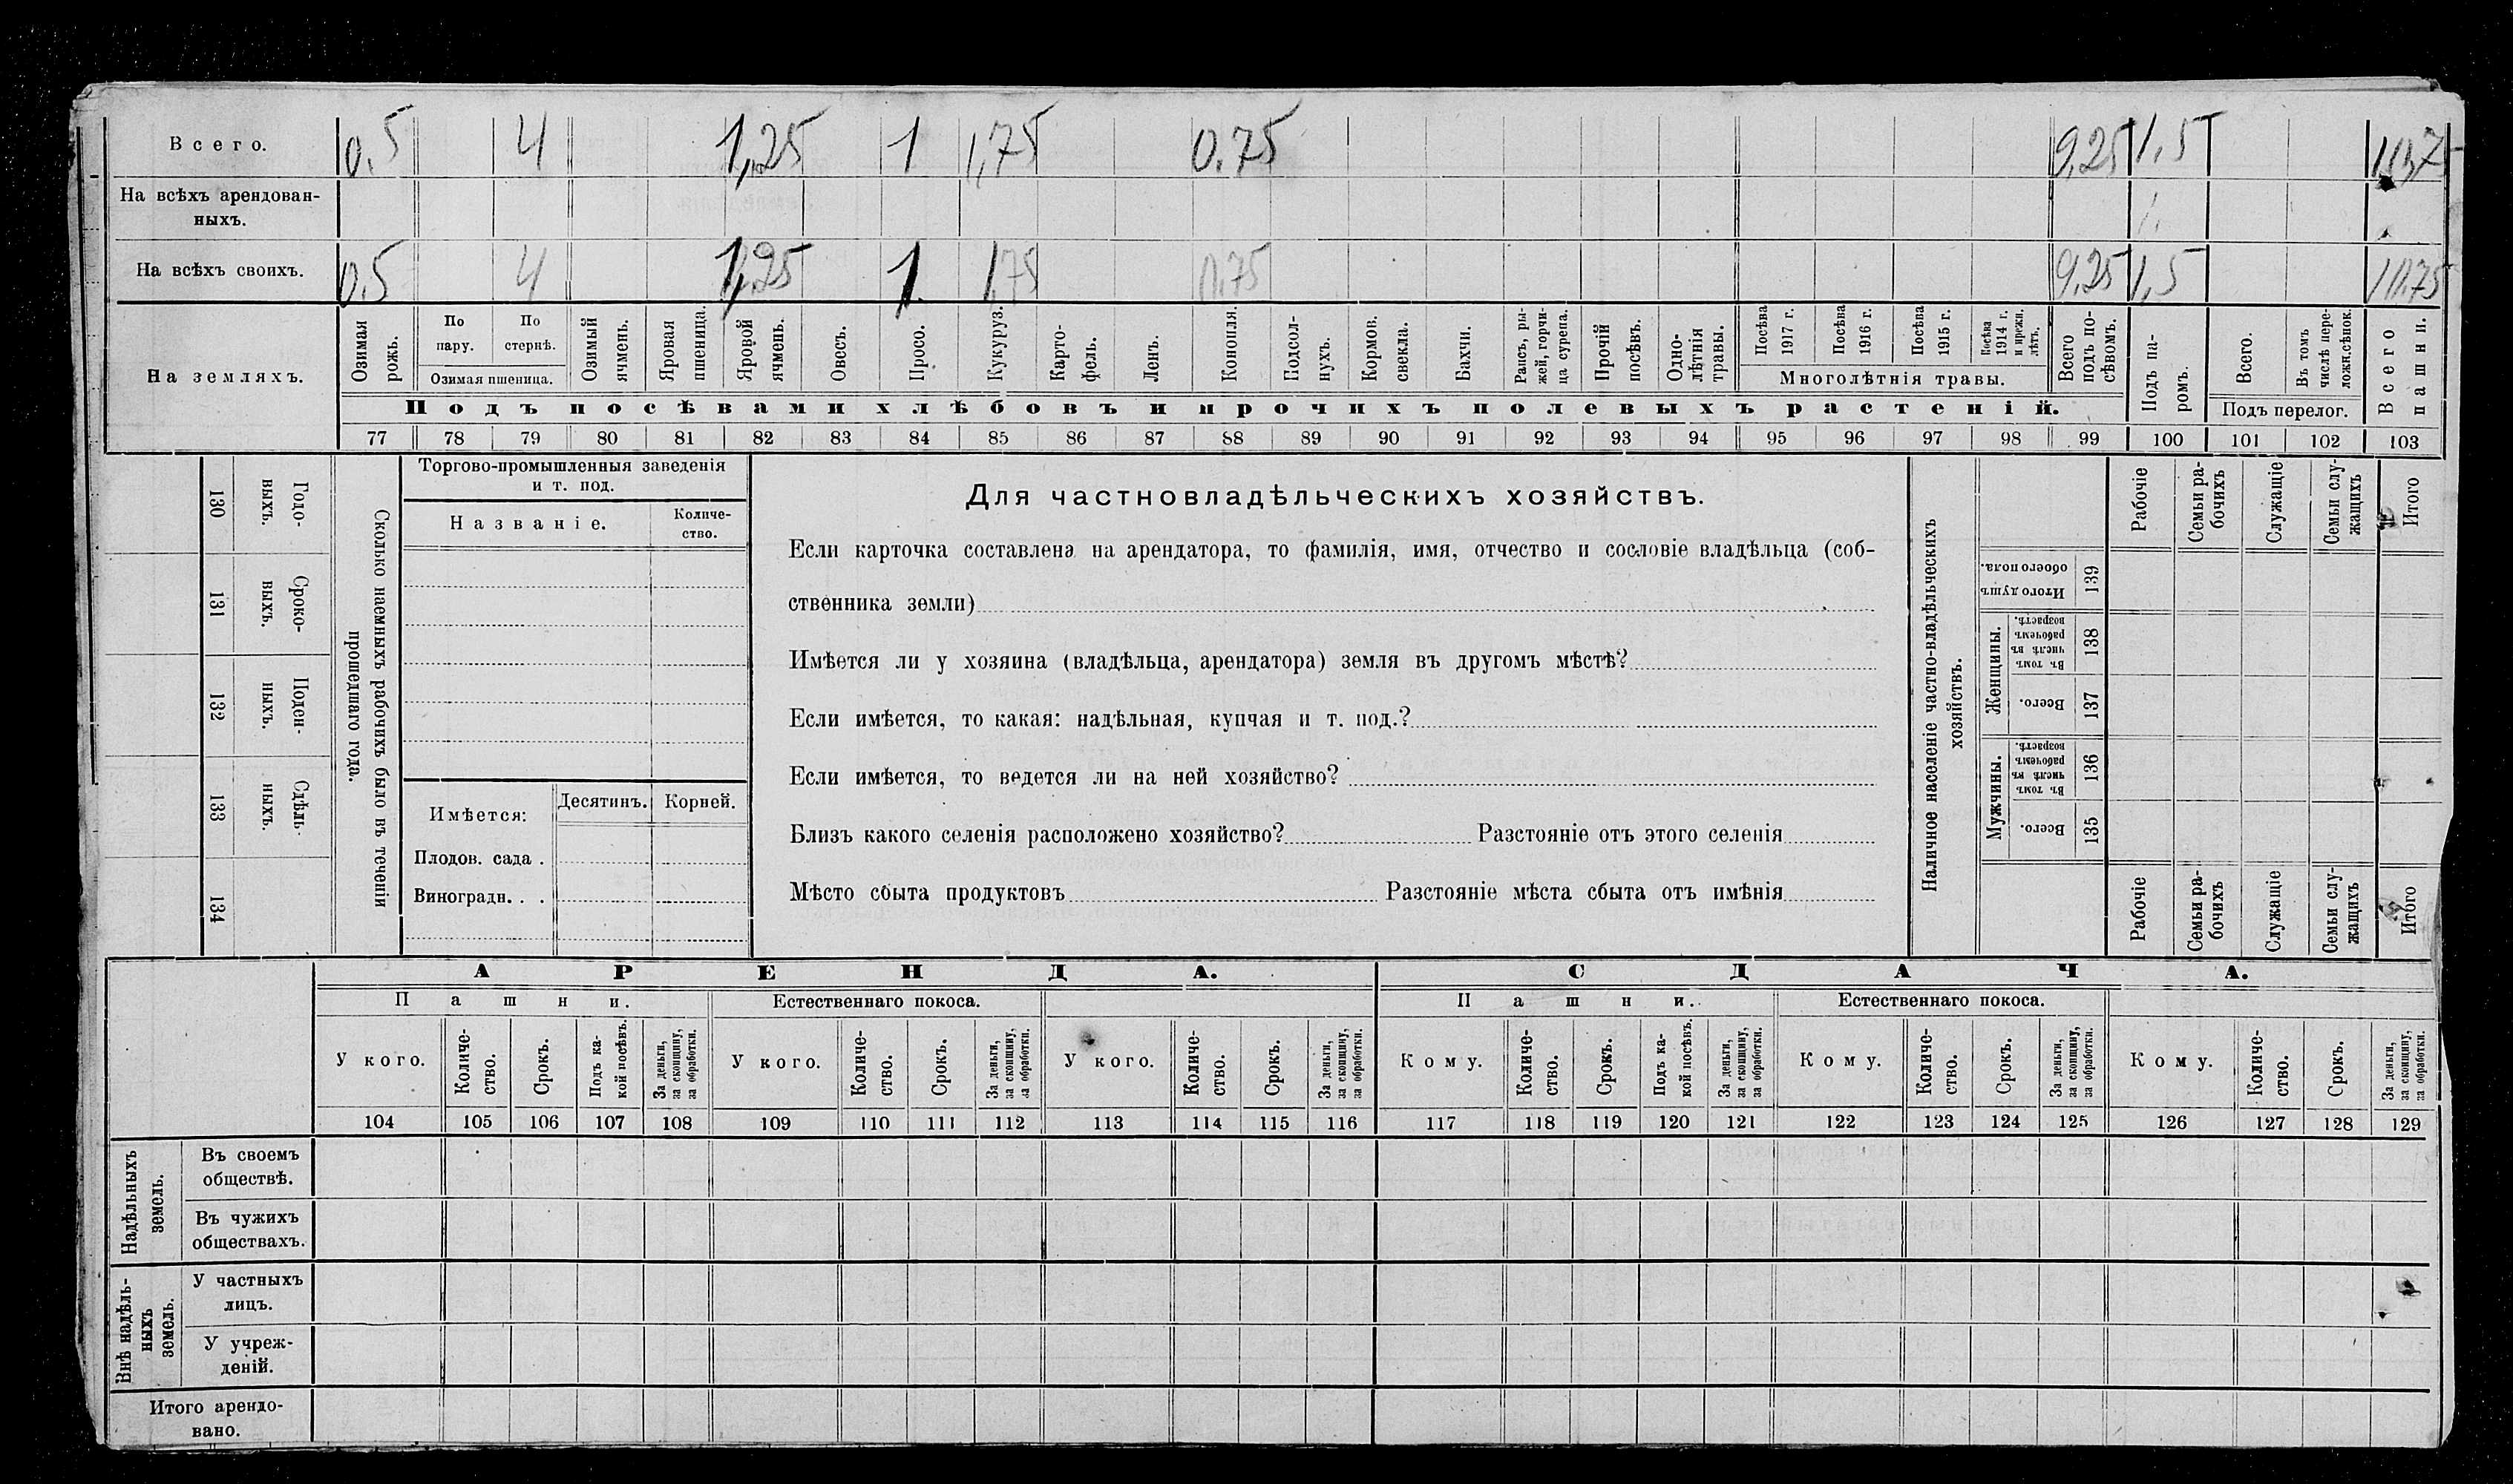 Всего. 0.5 4 1,25 1 1,75 0.75 9,25 1,5
На всѣхъ арендован-
ныхъ.
На всѣхъ своихъ. 0.5 4 1,25 1 1,75 0,75 9,25 1,5 10,75
На земляхъ.
Озимая рожь.
По пару.
По стернѣ.
Озимая пшеница.
Озимый ячмень.
Яровая пшеница.
Яровой ячмень.
Овесъ.
Просо.
Кукуруз.
Карто-
фель.
Ленъ.
Конопля.
Подсол-
нухъ.
Кормов. свекла.
Бахчи.
Рапсъ, ры-
жей, горчи-
ца сурепа.
Прочій посѣвъ.
Одно-
лѣтнія травы.
Посѣва 1917 г.
Посѣва 1916 г.
Посѣва 1915 г.
Посѣва 1914 г. и прежн. лѣтъ.
Многолѣтнія травы.
Всего подъ по-
сѣвомъ.
Подъ па-
ромъ.
Всего.
Въ томъ числѣ пере-
ложн. сѣнок.
Подъ перелог.
Всего пашни.
Подъ посѣвами хлѣбовъ и прочихъ полевыхъ растеній.
77 78 79 80 81 82 83 84 85 86 87 88 89 90 91 92 93 94 95 96 97 98 99 100 101 102 103
130 Годо-
выхъ.
131 Сроко-
выхъ.
132 Поден-
ныхъ.
133 Сдѣль-
ныхъ.
134
Сколько наемныхъ рабочихъ было въ теченіи
прошедшаго года.
Торгово-промышленныя заведенія
и т. под.
Названіе.
Количе-
ство.
Имѣется:
Десятинъ. Корней.
Плодов. сада .
Виноградн. . .
Для частновладѣльческихъ хозяйствъ.
Если карточка составлена на арендатора, то фамилія, имя, отчество и сословіе владѣльца (соб-
ственника земли)
Имѣется ли у хозяина (владѣльца, арендатора) земля въ другомъ мѣстѣ?
Если имѣется, то какая: надѣльная, купчая и т. под.?
Если имѣется, то ведется ли на ней хозяйство?
Близъ какого селенія расположено хозяйство? Разстояніе отъ этого селенія
Мѣсто сбыта продуктовъ Разстояніе мѣста сбыта отъ имѣнія
Наличное населеніе частно-владѣльческихъ
хозяйствъ.
Рабочіе
Семьи ра-
бочихъ
Служащіе
Семьи слу-
жащихъ
Итого
Итого душъ
обоего пола.
139
Женщины.
Въ томъ числѣ въ рабочемъ возрастѣ.
138
Всего.
137
Мужчины.
Въ томъ числѣ въ рабочемъ возрастѣ.
136
Всего.
135
Рабочіе
Семьи ра-
бочихъ
Служащіе
Семьи слу-
жащихъ
Итого
АРЕНДА. СДАЧА.
Пашни. Естественнаго покоса. Пашни. Естественнаго покоса.
У кого.
Количе-
ство.
Срокъ.
Подъ ка-
кой посѣвъ.
За деньги,
за скопщину,
за обработки.
У кого.
Количе-
ство.
Срокъ.
За деньги,
за скопщину,
за обработки.
У кого.
Количе-
ство.
Срокъ.
За деньги,
за скопщину,
за обработки.
Кому.
Количе-
ство.
Срокъ.
Подъ ка-
кой посѣвъ.
За деньги,
за скопщину,
за обработки.
Кому.
Количе-
ство.
Срокъ.
За деньги,
за скопщину,
за обработки.
Кому.
Количе-
ство.
Срокъ.
За деньги,
за скопщину,
за обработки.
104 105 106 107 108 109 110 111 112 113 114 115 116 117 118 119 120 121 122 123 124 125 126 127 128 129
Надѣльныхъ
земель.
Въ своемъ
обществѣ.
Въ чужихъ
обществахъ.
Внѣ надѣль-
ныхъ
земель.
У частныхъ
лицъ.
У учреж-
деній.
Итого арендо-
вано.